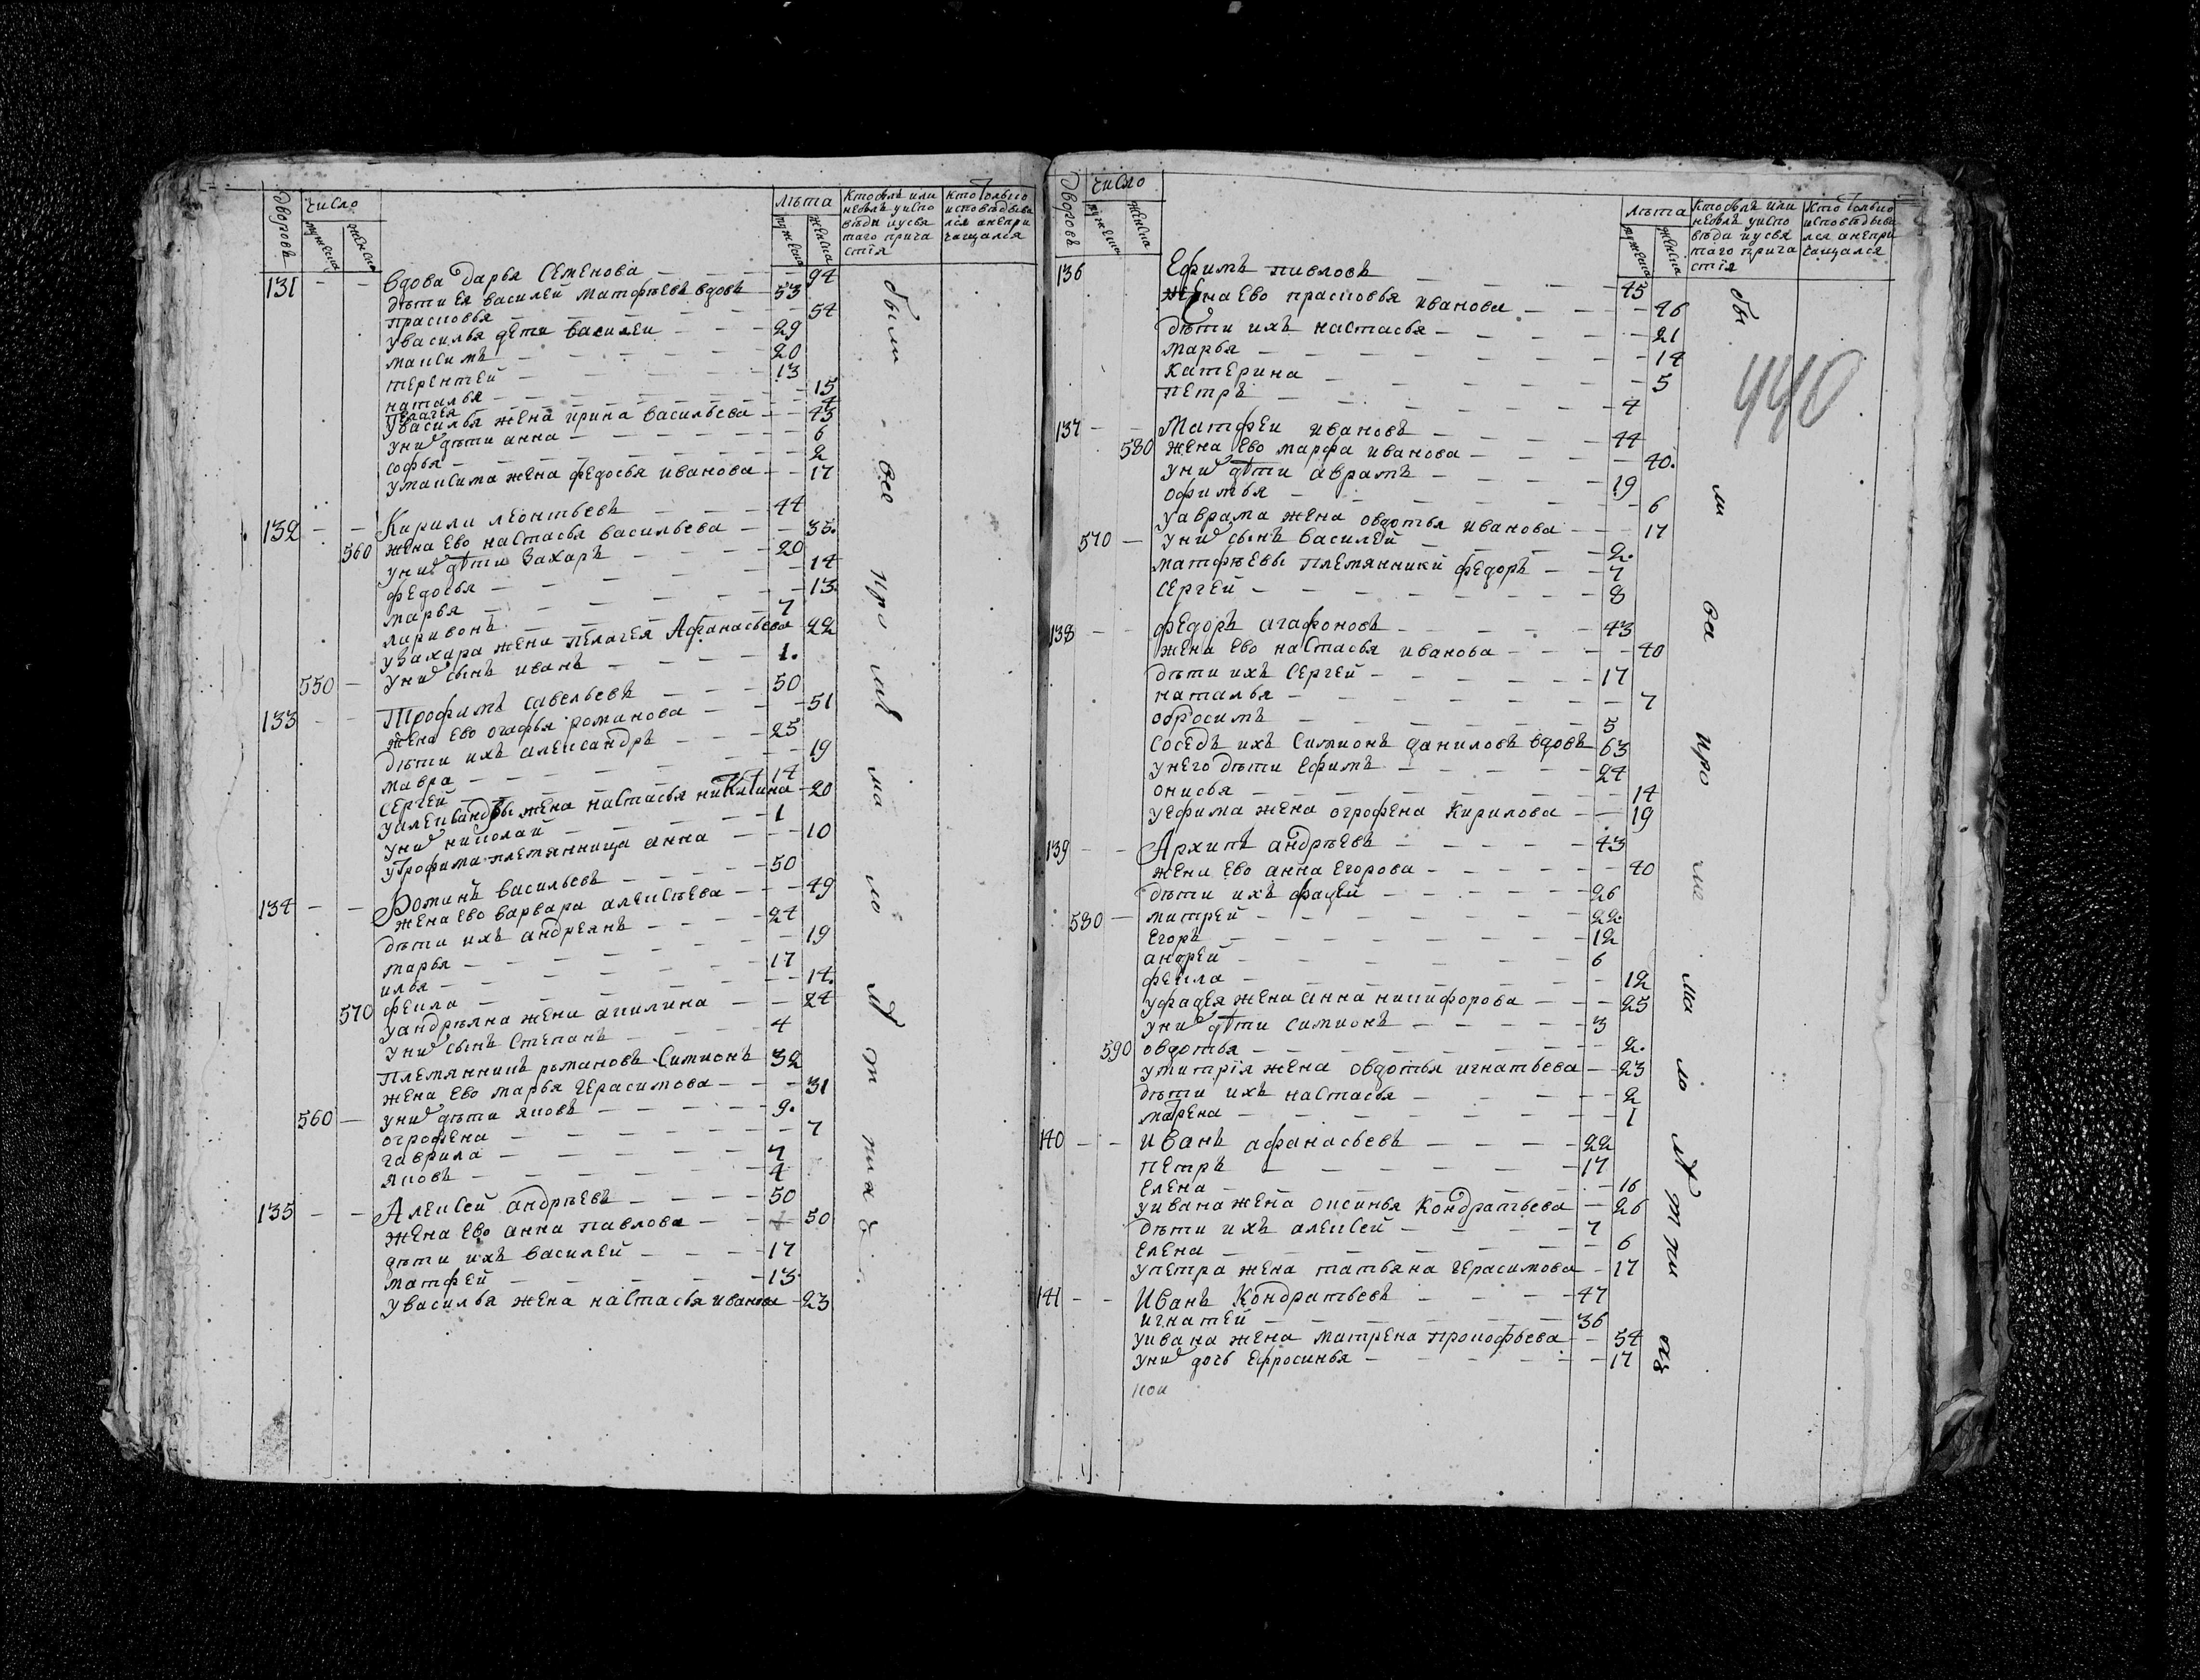 дворовъ
число
мужеска
женска
лѣта
мужеска
женска
кто былъ или
небылъ уиспо
вѣди иусвя
таго прича
стїя
кто только
исповѣдыва
лся анепри
чащался
131 - - Вдова дарья Семенова - 94
дѣти Ея василей матфѣевъ вдовъ - 53
прасковья - 54
увасилья дети василеи - 29
максимъ - 20
терентей - 13
наталья - 15
пелагея - 4
увасилья жена ирина васильева - 43
уних дѣти анна - 6
софья - 2
умаксима жена федосья иванова - 17
132 - - Кирили леонтьевъ - 44
560 жена Ево настасья васильева - 35.
уних дѣти Захаръ - 20
федосья - 14
марья - 13.
ларивонъ - 7
узахара жена пелагея Афанасьева 22
550 - уних сынъ иванъ - 1.
133 - - Трофимъ савельевъ - 50
жена ево огафья романова - 51
дѣти ихъ александръ - 25
мавра - 19
Сергей - 14
уалександры жена настасья никитина - 20
уних николай - 1
утрофима племянница анна - 10
134 - - Фоминъ васильевъ - 50
жена ево варвара алексѣева - 49
дѣти ихъ андреянъ - 24
марья - 19
илья - 17
570 фекла - 14.
уандрѣяна жена акилина - 24
уних сынъ Степанъ - 4
племянникъ романовъ Симионъ 32
жена ево марья герасимова - 31
560 - уних дѣти яковъ - 9.
огрофена - 7
гаврила - 7
яковъ - 4
135 - - Алексей андрѣевъ - 50
жена ево анна павлова - 50
дѣти ихъ василей - 17
матфей - 13
увасилья жена настасья иванова - 23
были все
440
дворовъ
число
мужеска
женска
лѣта
мужеска
женска
кто былъ или
небылъ уиспо
вѣди иусвя
таго прича
стїя
кто только
исповѣдыва
лся анепри
чащался
136 Ефимъ павловъ - 45
жена Ево прасковья иванова - 46
дѣти ихъ настасья - 21
марья - 14
катерина - 5
петръ - 4
137 - - Матфеи ивановъ - 44
580 жена ево марфа иванова - 40.
уних дѣти аврамъ - 19
офимья - 6
уаврама жена овдотья иванова - 17
570 - уних сынъ василей - 2.
матфѣевы племянники федоръ - 7
сергей - 8
138 - - федоръ агафоновъ - 43
жена ево настасья иванова - 40
дѣти ихъ Сергей - 17
наталья - 7
обросимъ - 5
соседъ ихъ Симионъ даниловъ вдовъ 63
унего дѣти ефимъ - 24
онисья - 14
уефима жена огрофена Кирилова - 19
139 - - Архипъ андрѣевъ - 43
жена ево анна егорова - 40
дѣти ихъ фадей - 26
580 - митрей - 22.
егоръ - 12
андрей - 6
фекла - 12
уфадея жена анна никифорова - 25
уних дѣти симионъ - 3
590 овдотья - 2.
умитрїя жена овдотья игнатьева - 23
дѣти ихъ настасья - 2
марена - 1
140 - - иванъ афанасьевъ - 22
петръ - 17
елена - 16
уивана жена оксинья Кондратьева - 26
дѣти ихъ алексей - 7
елена - 6
упетра жена татьяна герасимова - 17
141 - - Иванъ Кондратьевъ - 47
игнатей - 36
уивана жена матрена прокофьева - 54
уних дочь ефросинья - 17